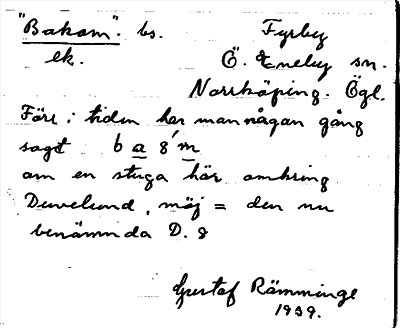 "Bakom". bs. Fyrby
ek. Ö. Eneby sn.
Norrköping. Ögl.
Förr i tiden har man någan gång
sagt b a g' m
om en stuga här omkring
Duvelund, möj = den nu
benämnda D. 8
Gustaf Rämminge
1939.